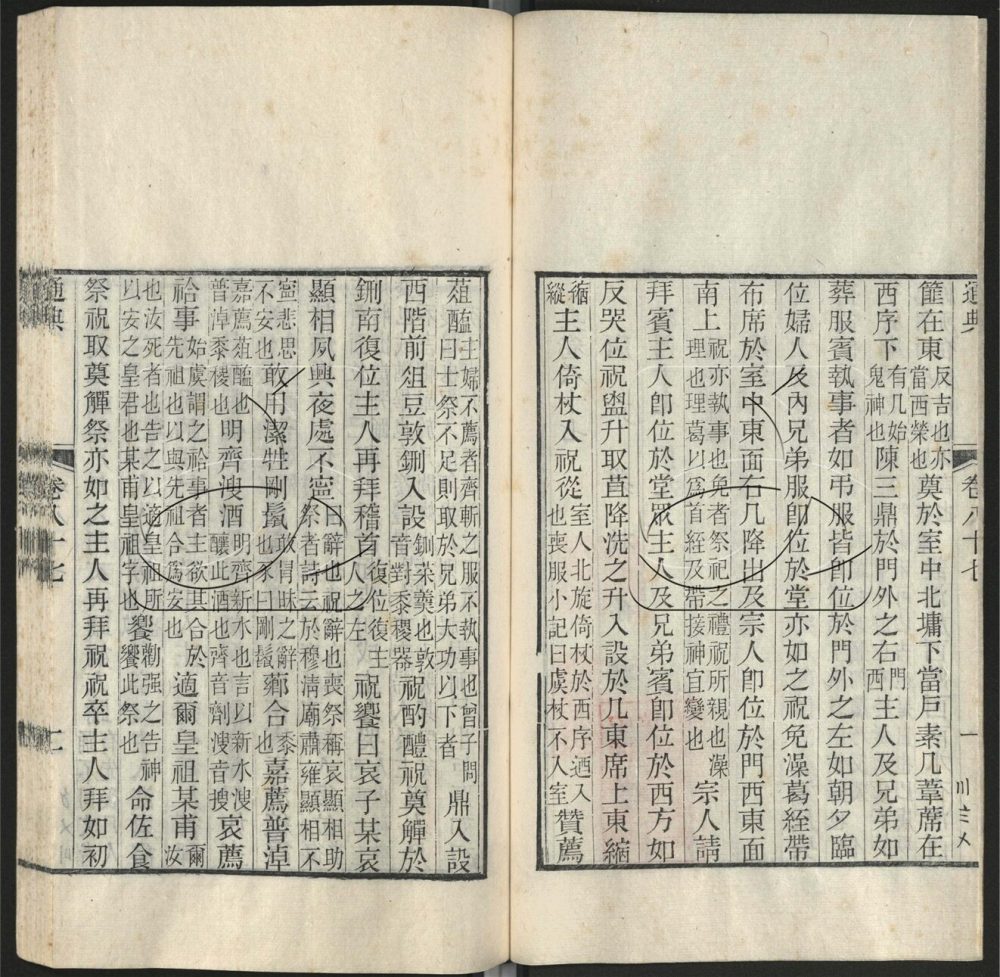 通典 卷八十七 一
篚在東反吉也亦當西榮也奠於室中北墉下當戶素几葦蓆在
西序下有几始鬼神也陳三鼎於門外之右門西主人及兄弟如
葬服賓執事者如弔服皆卽位於門外之左如朝夕臨
位婦人及內兄弟服卽位於堂亦如之祝免澡葛絰帶
布席於室中東面右几降出及宗人卽位於門西東面
南上祝亦執事也免者祭祀之禮祝所親也澡理也理葛以爲首絰及帶接神宜變也宗人請
拜賓主人卽位於堂眾主人及兄弟賓卽位於西方如
反哭位祝盥升取苴降洗之升入設於几東席上東縮
縮縱主人倚杖入祝從室人北旋倚杖於西序迺入也喪服小記曰虞杖不入室贊薦
葅醢主婦不薦者齊斬之服不執事也曾子問曰士祭不足則取於兄弟大功以下者鼎入設
西階前俎豆敦鉶入設鉶菜羹也敦音對黍稷器祝酌醴祝奠觶於
鉶南復位主人再拜稽首復位復主人之左祝饗曰哀子某哀
顯相夙興夜處不寍曰辭也祝辭也喪祭稱哀顯相助祭者詩云於穆清廟肅雍顯相不
寍悲思不安也敢用潔牲剛鬣敢冒昧之辭也豕曰剛鬣薌合黍也嘉薦普淖
嘉薦葅醢也普淖黍稷也明齊溲酒明齊新水也言以新水溲釀此酒也齊音劑溲音搜哀薦
祫事始虞謂之祫事者主欲其合於先祖也以與先祖合爲安也適爾皇祖某甫爾汝
也汝死者也告之以適皇祖所以安之皇君也某甫皇祖字也饗勸强之告神饗此祭也命佐食
祭祝取奠觶祭亦如之主人再拜祝祝卒主人拜如初
通典 卷八十七 二